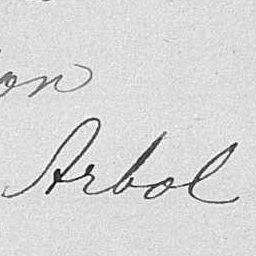 on
Arbol